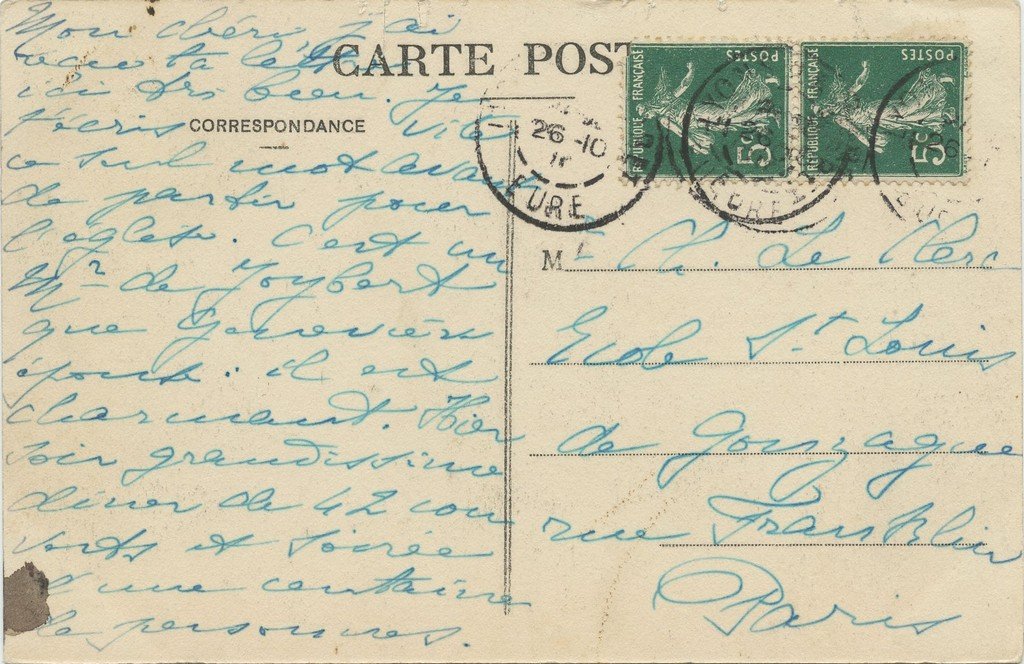 CARTE POST
CORRESPONDANCE
Mon chéri, j'ai
reçu ta lettre
ici très bien. Je
t'écris vite
ce seul mot avant
de partir pour
l'église. C'est un
Mr de Joybert
que Geneviève
épouse. il est
charmant. Hier
soir grandissime
dîner de 42 cou
verts et soirée
d'une centaine
de personnes.
RÉPUBLIQUE FRANÇAISE
POSTES
5c
RÉPUBLIQUE FRANÇAISE
POSTES
5c
26-10
EURE
EURE
M
Ch. Le Clerc
Ecole St Louis
de Gonzague
rue Franklin
Paris